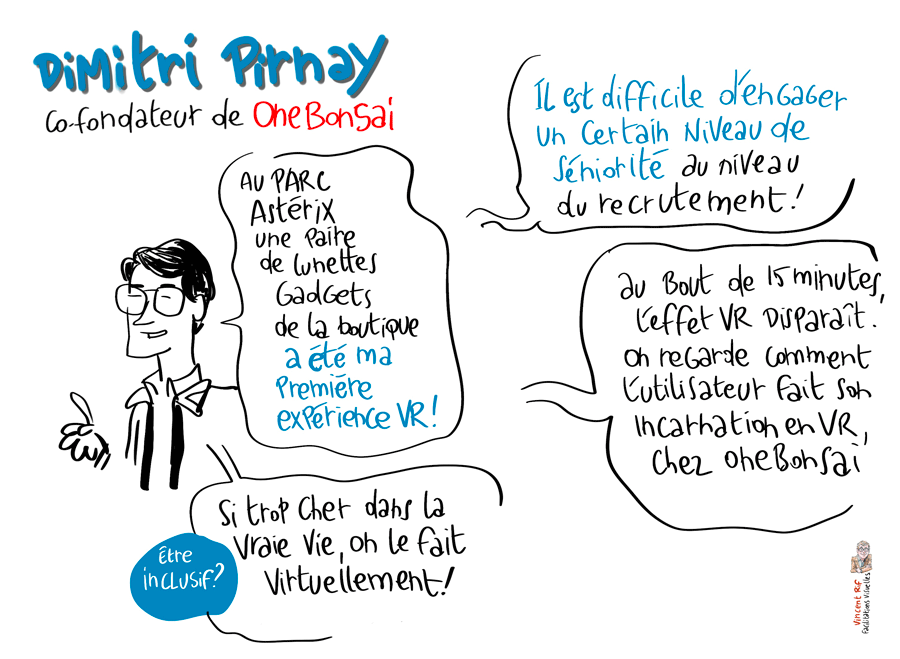 Dimitri Pirnay
Co-fondateur de OneBonSai
Au PARC
Astérix
une Paire
de Lunettes
GadGets
de la boutique
a été ma
Première
expérience VR!
Il est difficile d'engager
un Certain Niveau de
Séniorité au niveau
du recrutement!
au Bout de 15 minutes,
l'effet VR Disparaît.
on regarde comment
l'utilisateur fait son
Incarnation en VR,
Chez OneBonSai
Si trop Cher dans la
Vraie Vie, on le fait
Virtuellement!
Être
inclusif?
Vincent Rif
Facilitations Visuelles